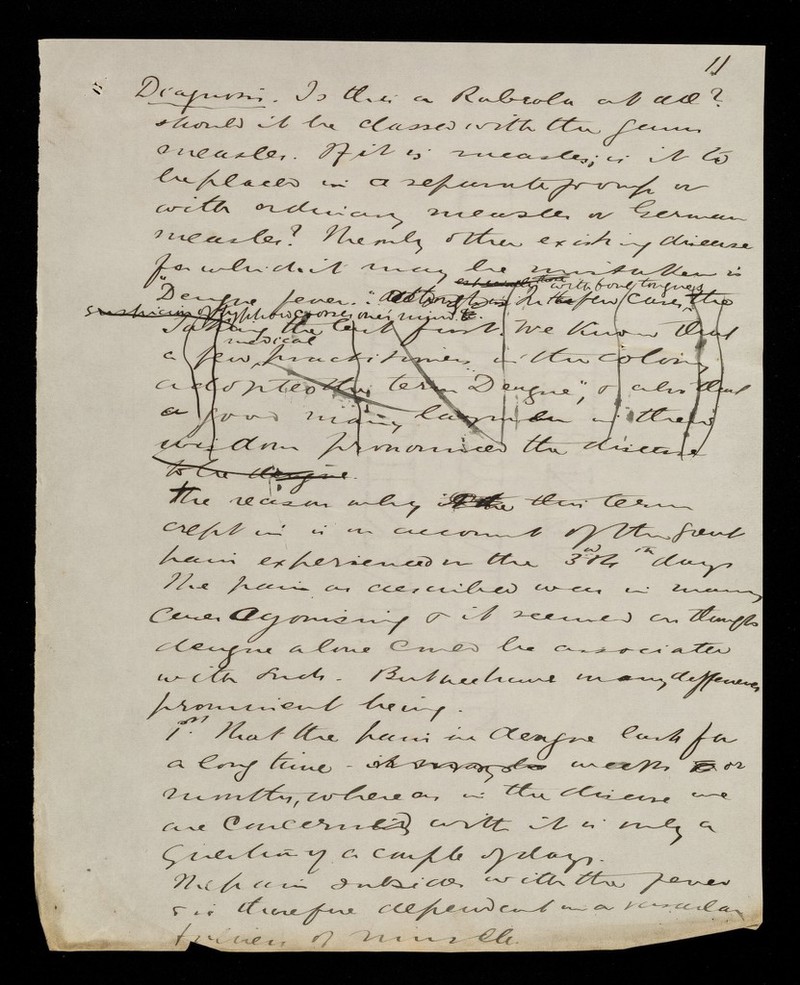 11
Diagnosis. Is this a Rubeola at all?
should it be classed with the genus
measles. If it is measles, is it to
be placed in a separate group or
with ordinary measles or German
measles? The only other existing disease
for which it may be mistaken is
especially with bone tongued
"Dengue fever". although in a few cases, the
suspicion of typhoid crosses one's mind.
Taking the last first. We know that
medical
a few practitioners in the colony
adopted the term "Dengue", & also that
a good many laymen in their
wisdom pronounced the disease
to be dengue.
The reason why this term
crept in is on account of the great
pain experienced on the 3rd days
The pain as described was in many
cases agonising & it seemed as though
dengue alone could be associated
with such. But we have many differences
prominent being.
1st. That the pain in dengue lasts for
a long time - weeks or
months, whereas in the disease we
are concerned with it is only a
question of a couple of days.
The pain subsides with the fever
& is therefore dependent on a vascular
of muscle.